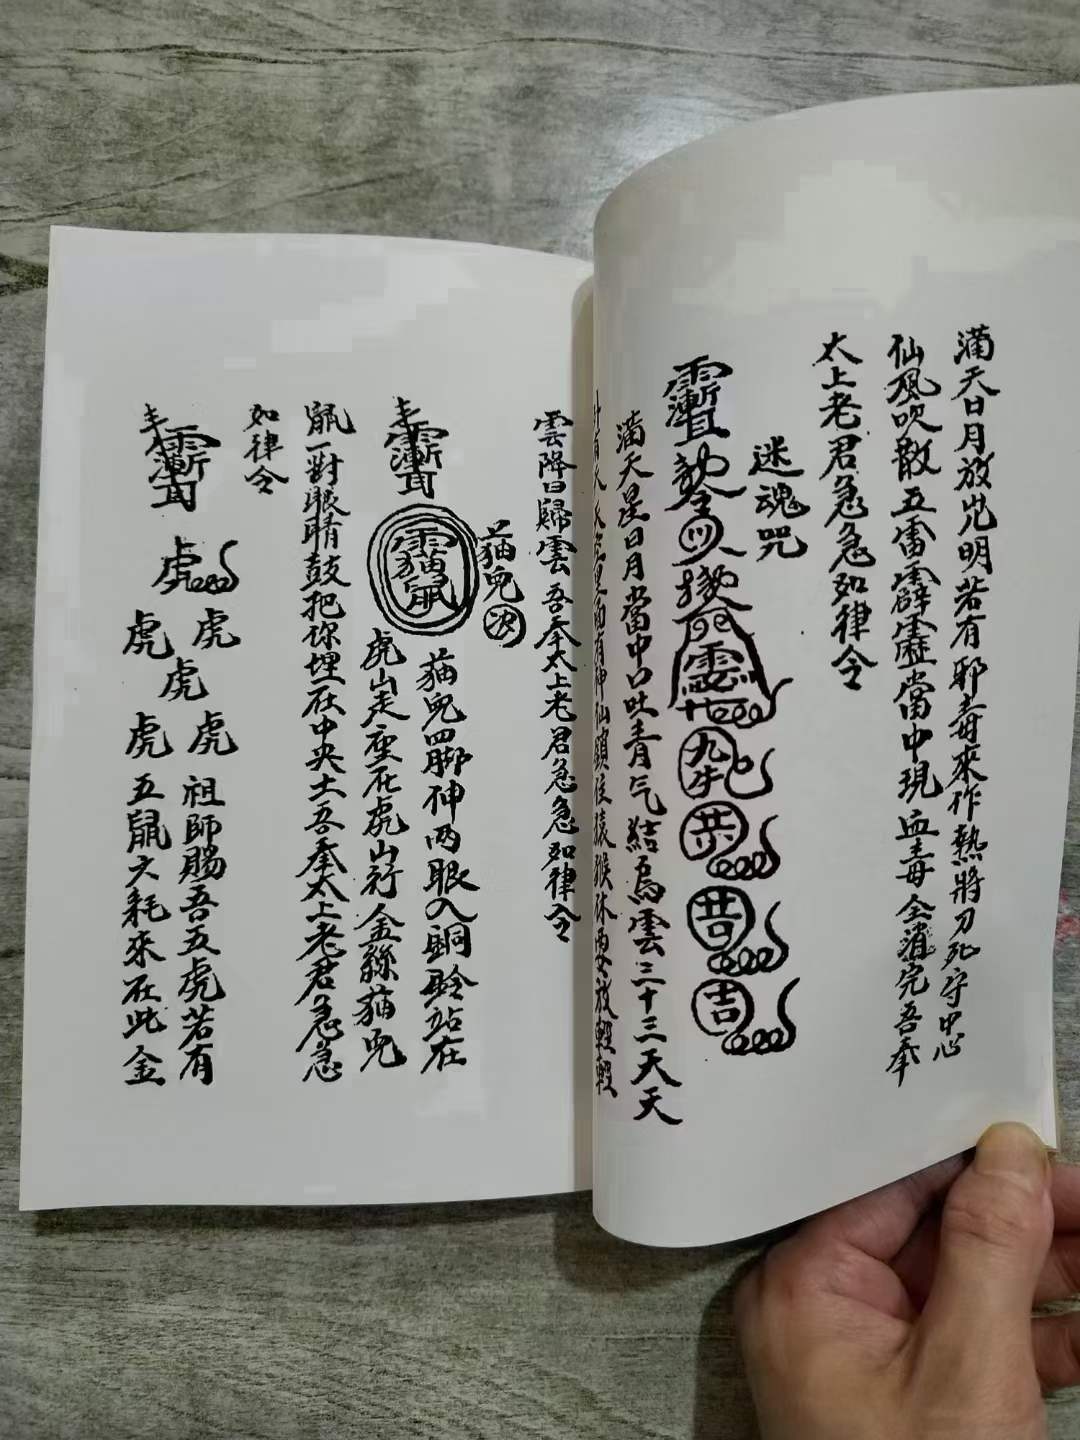 滿天日月放光明若有邪毒來作熱將刀死守中心
仙風吹散五雷霹靂當中現血毒全消完吾奉
太上老君急急如律令
迷魂咒
滿天星日月當中口吐青气結烏雲三十三天天
神仙鎖住猿猴休要放輕輕
雲降日歸雲吾奉太上老君急急如律令
猫兒
猫兒四脚伸兩眼入銅鈴站在
虎山走座在虎山行金絲猫兒
鼠一對眼睛鼓把你埋在中央土吾奉太上老君急急
如律令
虎
虎
虎
虎
虎
虎
祖師賜吾五虎若有
五鼠六耗來在此金